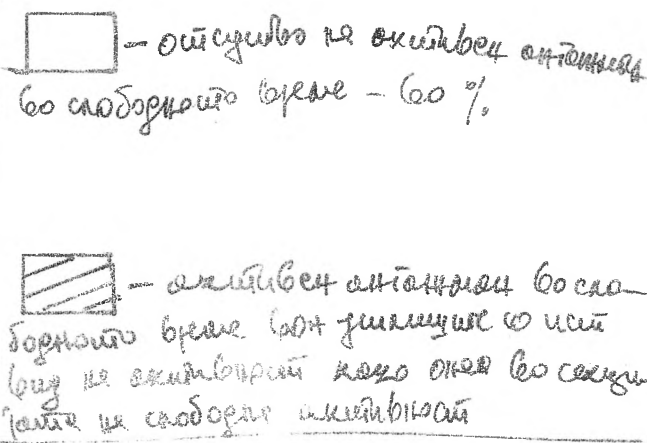 - отсуство на активен ангажман
во слободното време - во %
- активен ангажман во сло-
бодното време вон училиште со ист
вид на активност како онаа во секци
јата на слободни активност